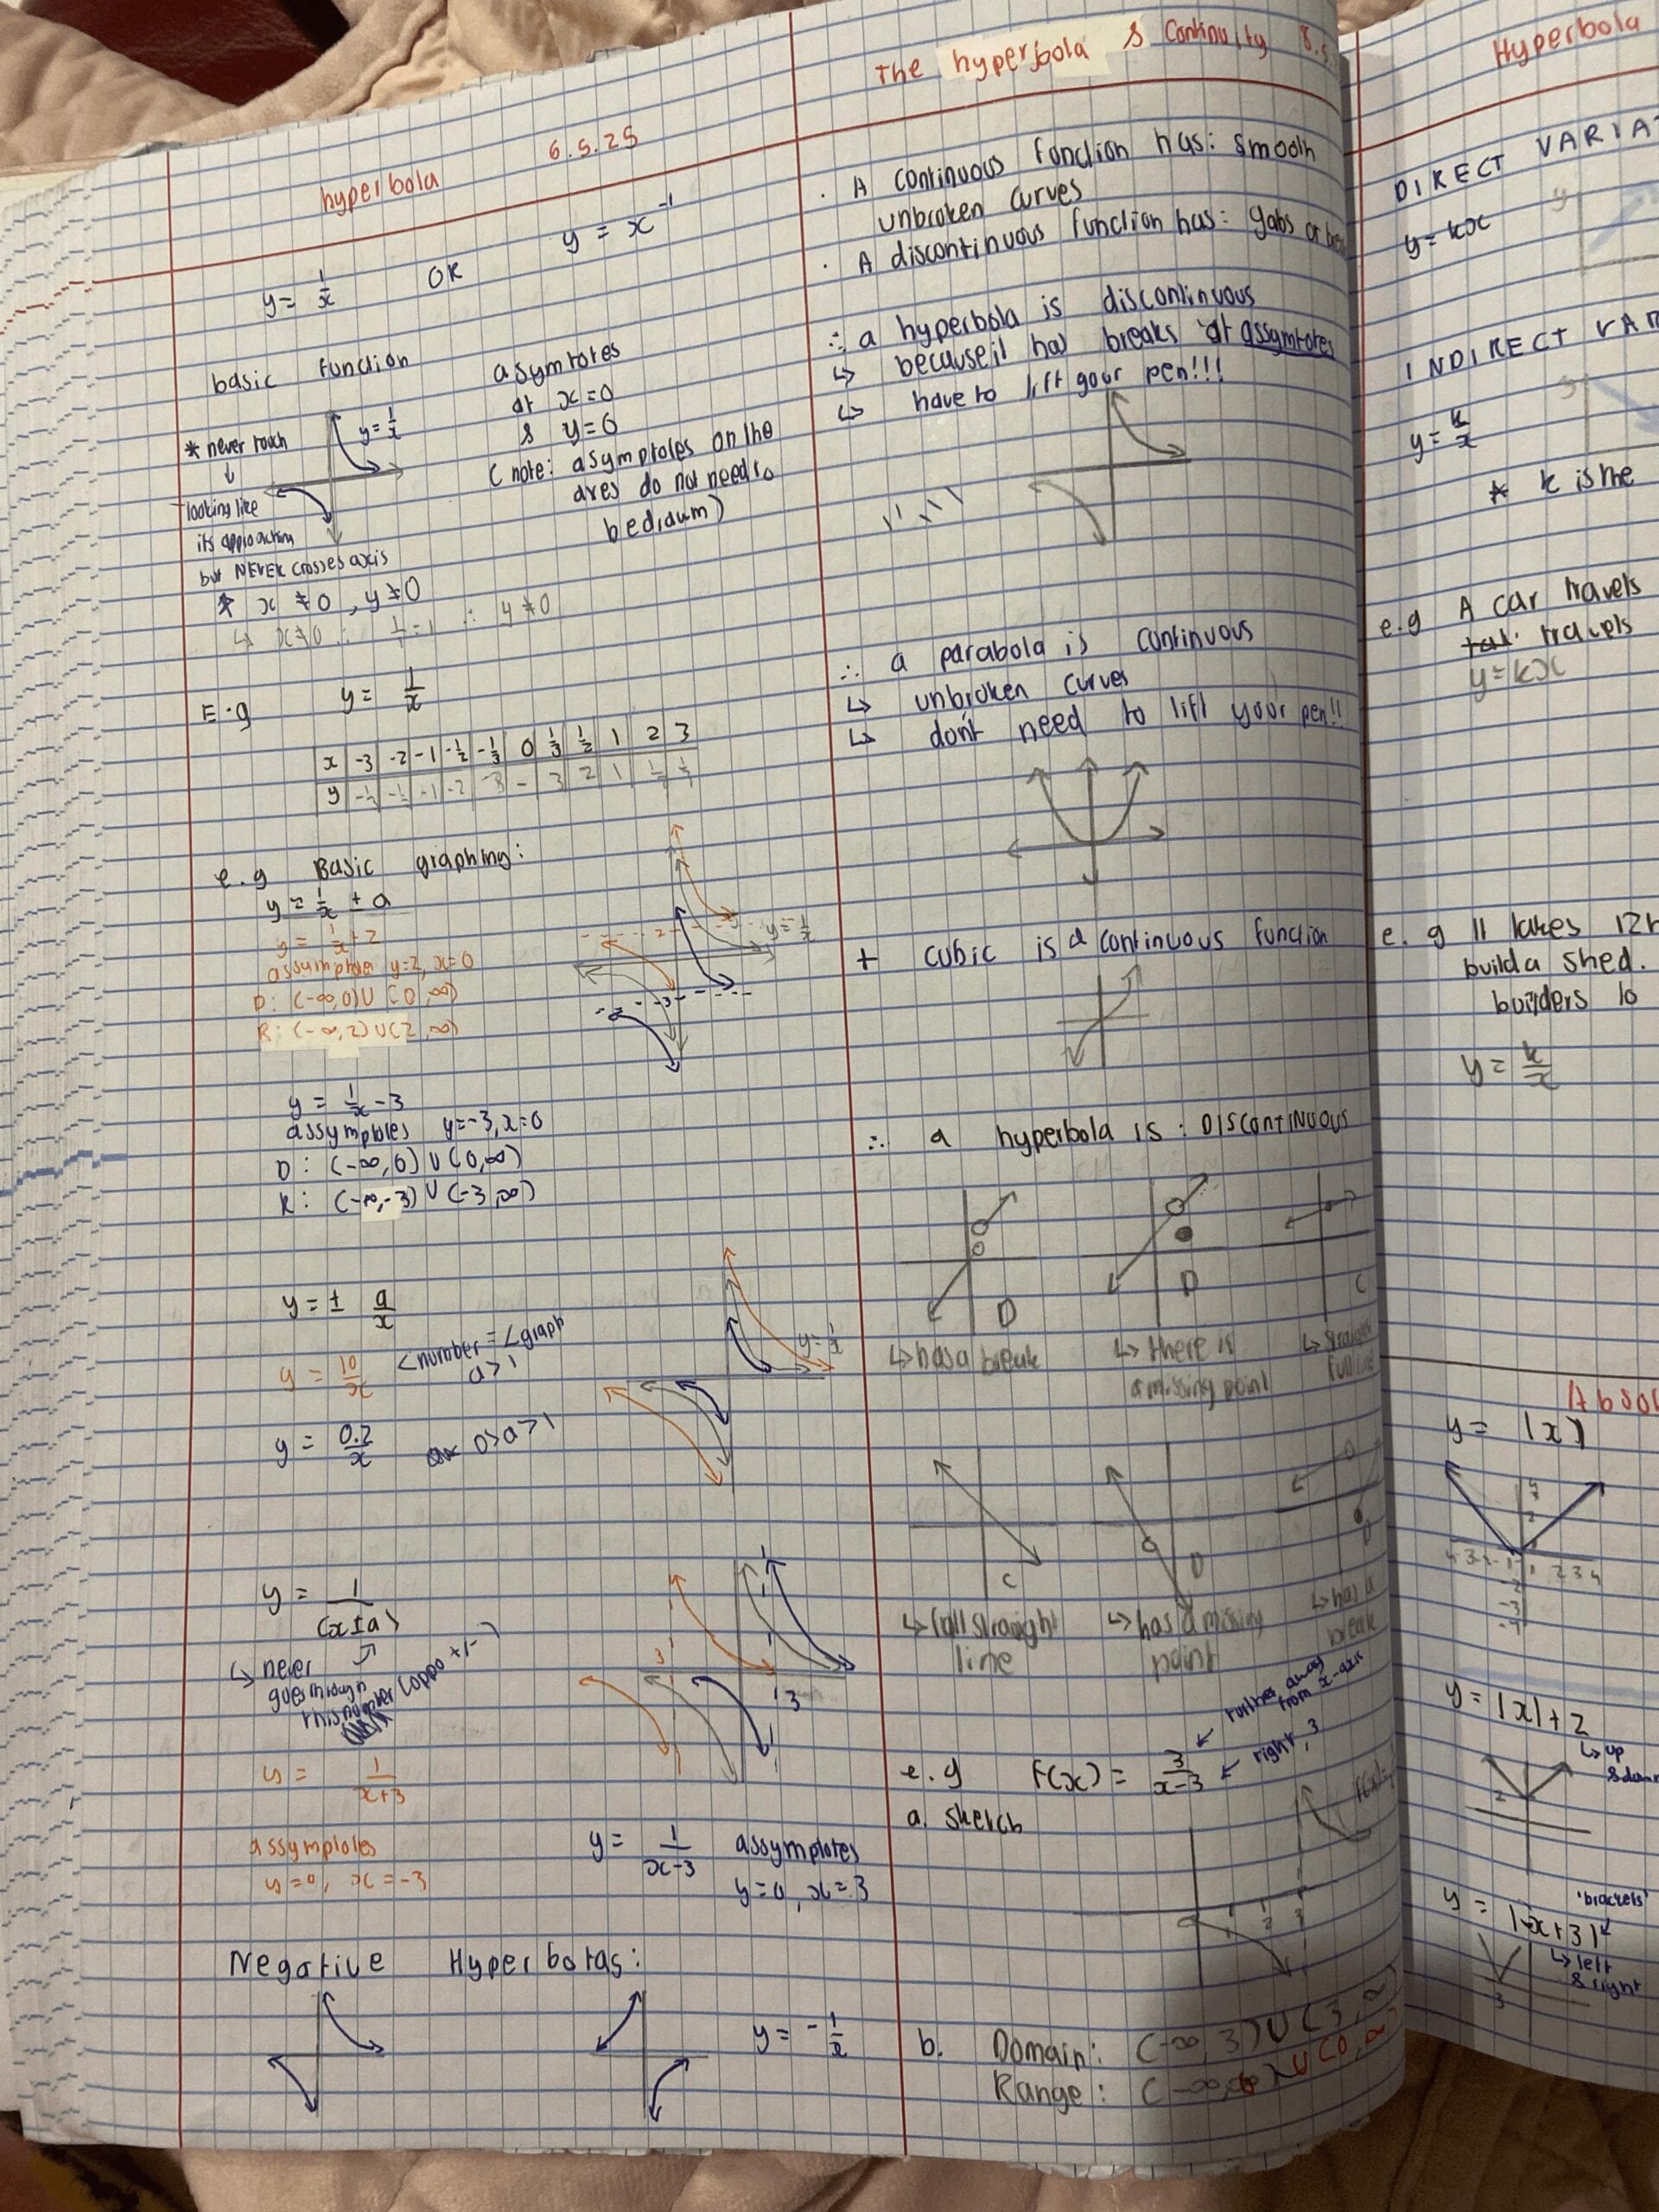 hyperbola
6.5.25
y = 1/x OR y = x^-1
basic function
asymtotes
at x=0
& y=0
(note: asymptotes on the
axes do not need to
be drawn)
* never touch
↓
looking like
its approaching
but NEVER crosses axis
y = 1/x
* x ≠ 0, y ≠ 0
↳ x≠0 ∴ ∴ y ≠ 0
E.g y = 1/x
x -3 -2 -1 -1/2 -1/3 0 1/3 1/2 1 2 3
y -1/3 -1/2 -1 -2 -3 - 3 2 1 1/2 1/3
e.g Basic graphing:
y = 1/x ± a
y = 1/x + 2
assymptotes y=2, x=0
D: (-∞,0) U (0,∞)
R: (-∞,2) U (2,∞)
2
y = 1/x
-3
y = 1/x - 3
assymptotes y=-3, x=0
D: (-∞,0) U (0,∞)
R: (-∞,-3) U (-3,∞)
y = ± a/x
y = 10/x <number = <graph
a>1
y = 0.2/x 0>a>1
y = 1/x
y = 1/(x±a)
↳ never
goes through
this number (oppo +/-)
3
3
y = 1/x+3
assymptotes
y=0, x=-3
y = 1/x-3 assymptotes
y=0, x=3
Negative Hyperbolas:
y = -1/x
The hyperbola & Continuity 8.5
. A continuous function has: smooth
unbroken curves
. A discontinuous function has: gabs or
∴ a hyperbola is discontinuous
↳ because it has breaks at assymtotes
↳ have to lift your pen!!!
∴ a parabola is continuous
↳ unbroken curves
↳ don't need to lift your pen!!
+ cubic is a continuous function
∴ a hyperbola is: DISCONTINUOUS
D
D
C
↳ has a break
↳ there is
a missing point
↳ straight
full line
C
D
D
↳ full straight
line
↳ has a missing
point
↳ has a
break
further away
from x-axis
e.g f(x) = 3/x-3
right, 3
a. sketch
1 2 3
b. Domain: (-∞, 3) U (3, ∞)
Range: (-∞, 0) U (0, ∞)
Hyperbola
DIRECT VARIAT
y = kx
y
INDIRECT VAR
y = k/x
y
* k is the
e.g A car travels
travels
y = kx
e.g It takes 12h
build a shed.
builders to
y = k/x
Absol
y = |x|
y = |x|+2
↳ up
& down
2
'brackets'
y = |-x+3|
↳ left
& right
3